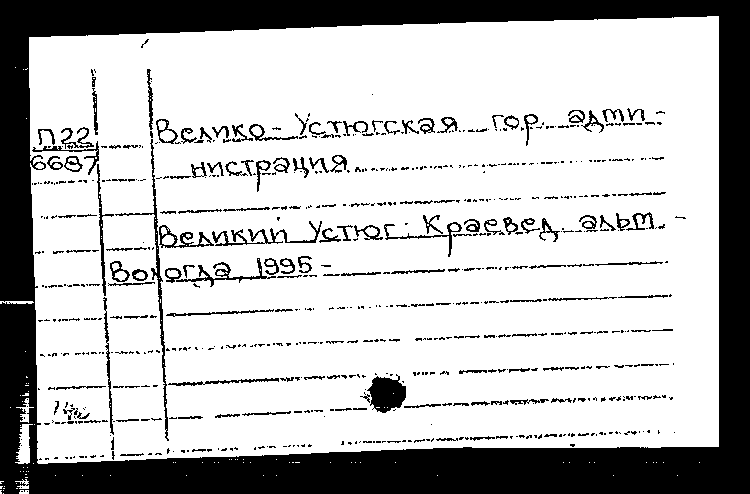 П22
6687
Велико-Устюгская гор. адми-
нистрация
Великий Устюг: Краевед. альм. -
Вологда, 1995 -